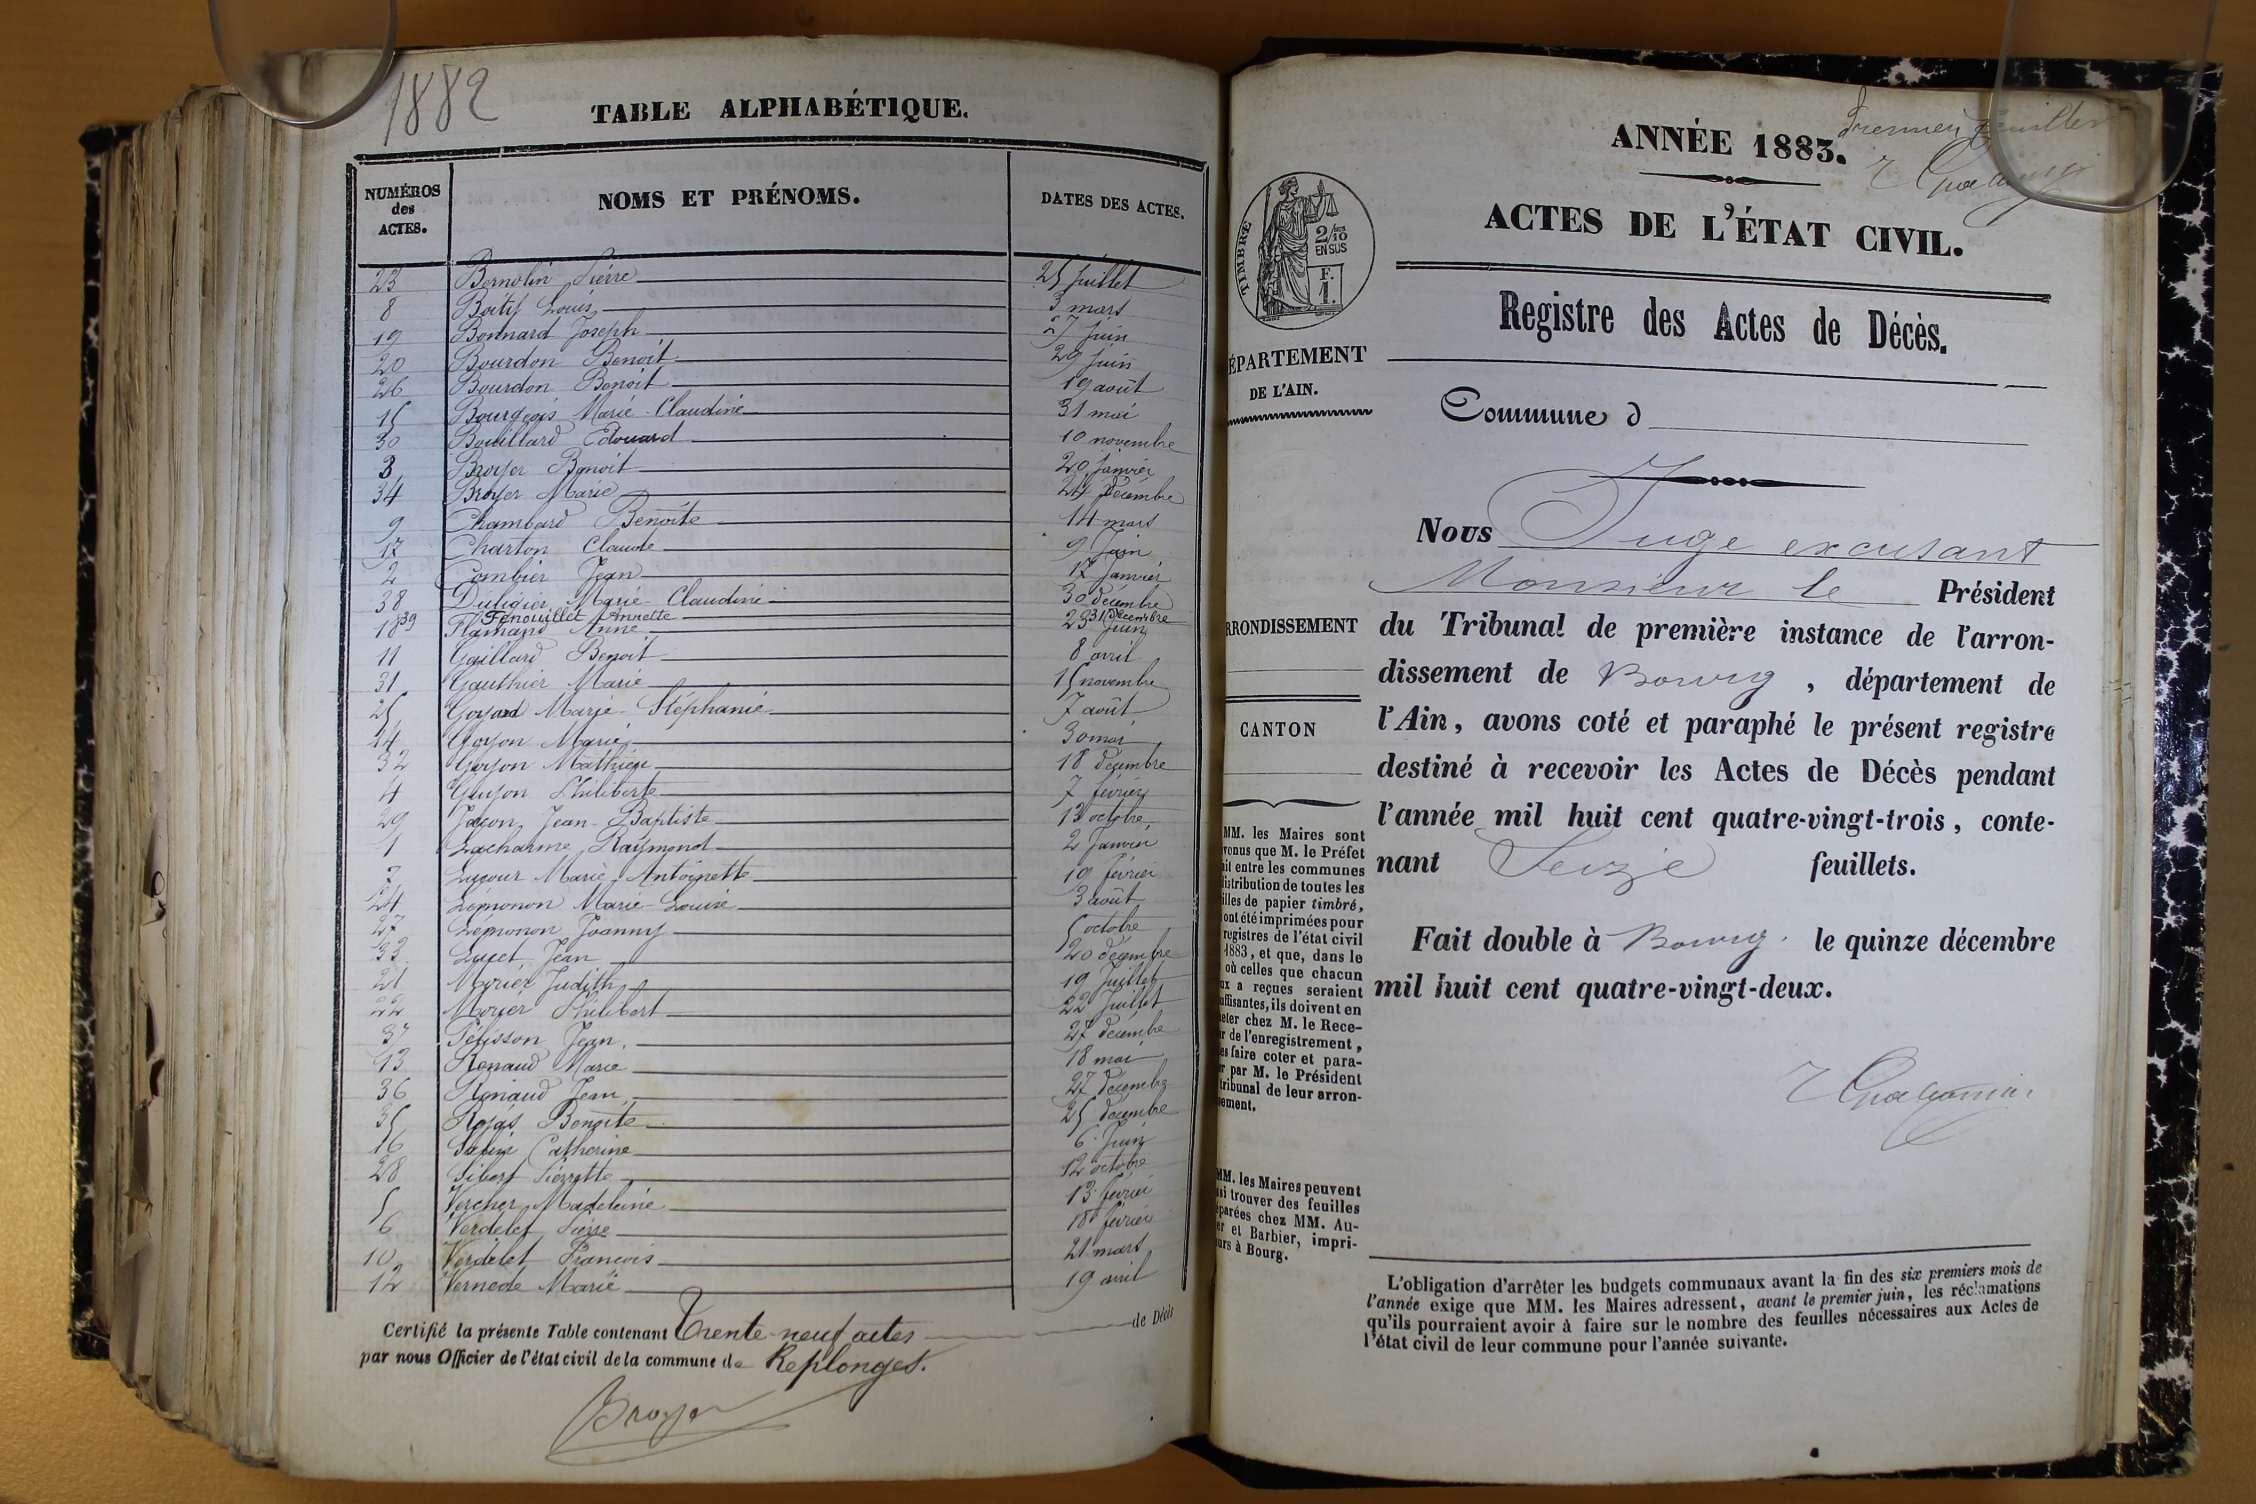 1882
TABLE ALPHABÉTIQUE.
NUMÉROS des ACTES. NOMS ET PRÉNOMS. DATES DES ACTES.
23 Bernolin Pierre 25 juillet
8 Boitif Louis 3 mars
19 Bonnard Joseph 27 juin
20 Bourdon Benoît 29 juin
26 Bourdon Benoit 19 août
15 Bourgeois Marie-Claudine 31 mai
30 Bouillard Edouard 10 novembre
3 Broyer Benoit 20 janvier
34 Broyer Marie 24 décembre
9 Chambard Benoîte 14 mars
17 Charton Claude 9 Juin
2 Combier Jean 17 Janvier
38 Duligier Marie-Claudine 30 décembre
39 Fenouillet Annette 31 Décembre
18 Flamand Anne 23 Juin
11 Gaillard Benoit 8 avril
31 Gauthier Marie 15 novembre
25 Goyard Marie-Stéphanie 7 août
14 Goyon Marie 30 mai
32 Goyon Mathieu 18 décembre
4 Guyon Philiberte 7 février
29 Jacon Jean-Baptiste 13 octobre
1 Lacharme Raymond 2 Janvier
7 Lacour Marie-Antoinette 19 février
24 Lémonon Marie-Louise 3 août
27 Lémonon Joanny 5 octobre
33 Luset Jean 20 décembre
21 Morier Judith 19 Juillet
22 Morier Philibert 22 Juillet
37 Pélisson Jean 27 décembre
13 Renaud Marie 18 mai
36 Renaud Jean 27 décembre
35 Rojas Benoîte 25 décembre
16 Sabin Catherine 6 Juin
28 Sibert Pierrette 12 octobre
5 Vercher Madeleine 13 février
6 Verdelet Pierre 18 février
10 Verdelet François 21 mars
12 Vernede Marie 19 avril
Certifié la présente Table contenant Trente-neuf actes de Décès
par nous Officier de l'état civil de la commune de Replonges.
Broyer
Premier feuillet
ANNÉE 1883.
ACTES DE L'ÉTAT CIVIL.
TIMBRE
2/10
EN SUS
F.
1.
Registre des Actes de Décès.
ÉPARTEMENT
DE L'AIN.
Commune d
Nous Juge excusant
Monsieur le Président
RRONDISSEMENT
du Tribunal de première instance de l'arron-
dissement de Bourg, département de
l'Ain, avons coté et paraphé le présent registre
CANTON
destiné à recevoir les Actes de Décès pendant
l'année mil huit cent quatre-vingt-trois, conte-
nant Seize feuillets.
Fait double à Bourg. le quinze décembre
mil huit cent quatre-vingt-deux.
MM. les Maires sont
venus que M. le Préfet
ait entre les communes
distribution de toutes les
illes de papier timbré,
ont été imprimées pour
registres de l'état civil
1883, et que, dans le
où celles que chacun
ux a reçues seraient
uffisantes, ils doivent en
eter chez M. le Rece-
r de l'enregistrement,
es faire coter et para-
r par M. le Président
tribunal de leur arron-
ement.
MM. les Maires peuvent
si trouver des feuilles
parées chez MM. Au-
er et Barbier, impri-
urs à Bourg.
L'obligation d'arrêter les budgets communaux avant la fin des six premiers mois de
l'année exige que MM. les Maires adressent, avant le premier juin, les réclamations
qu'ils pourraient avoir à faire sur le nombre des feuilles nécessaires aux Actes de
l'état civil de leur commune pour l'année suivante.